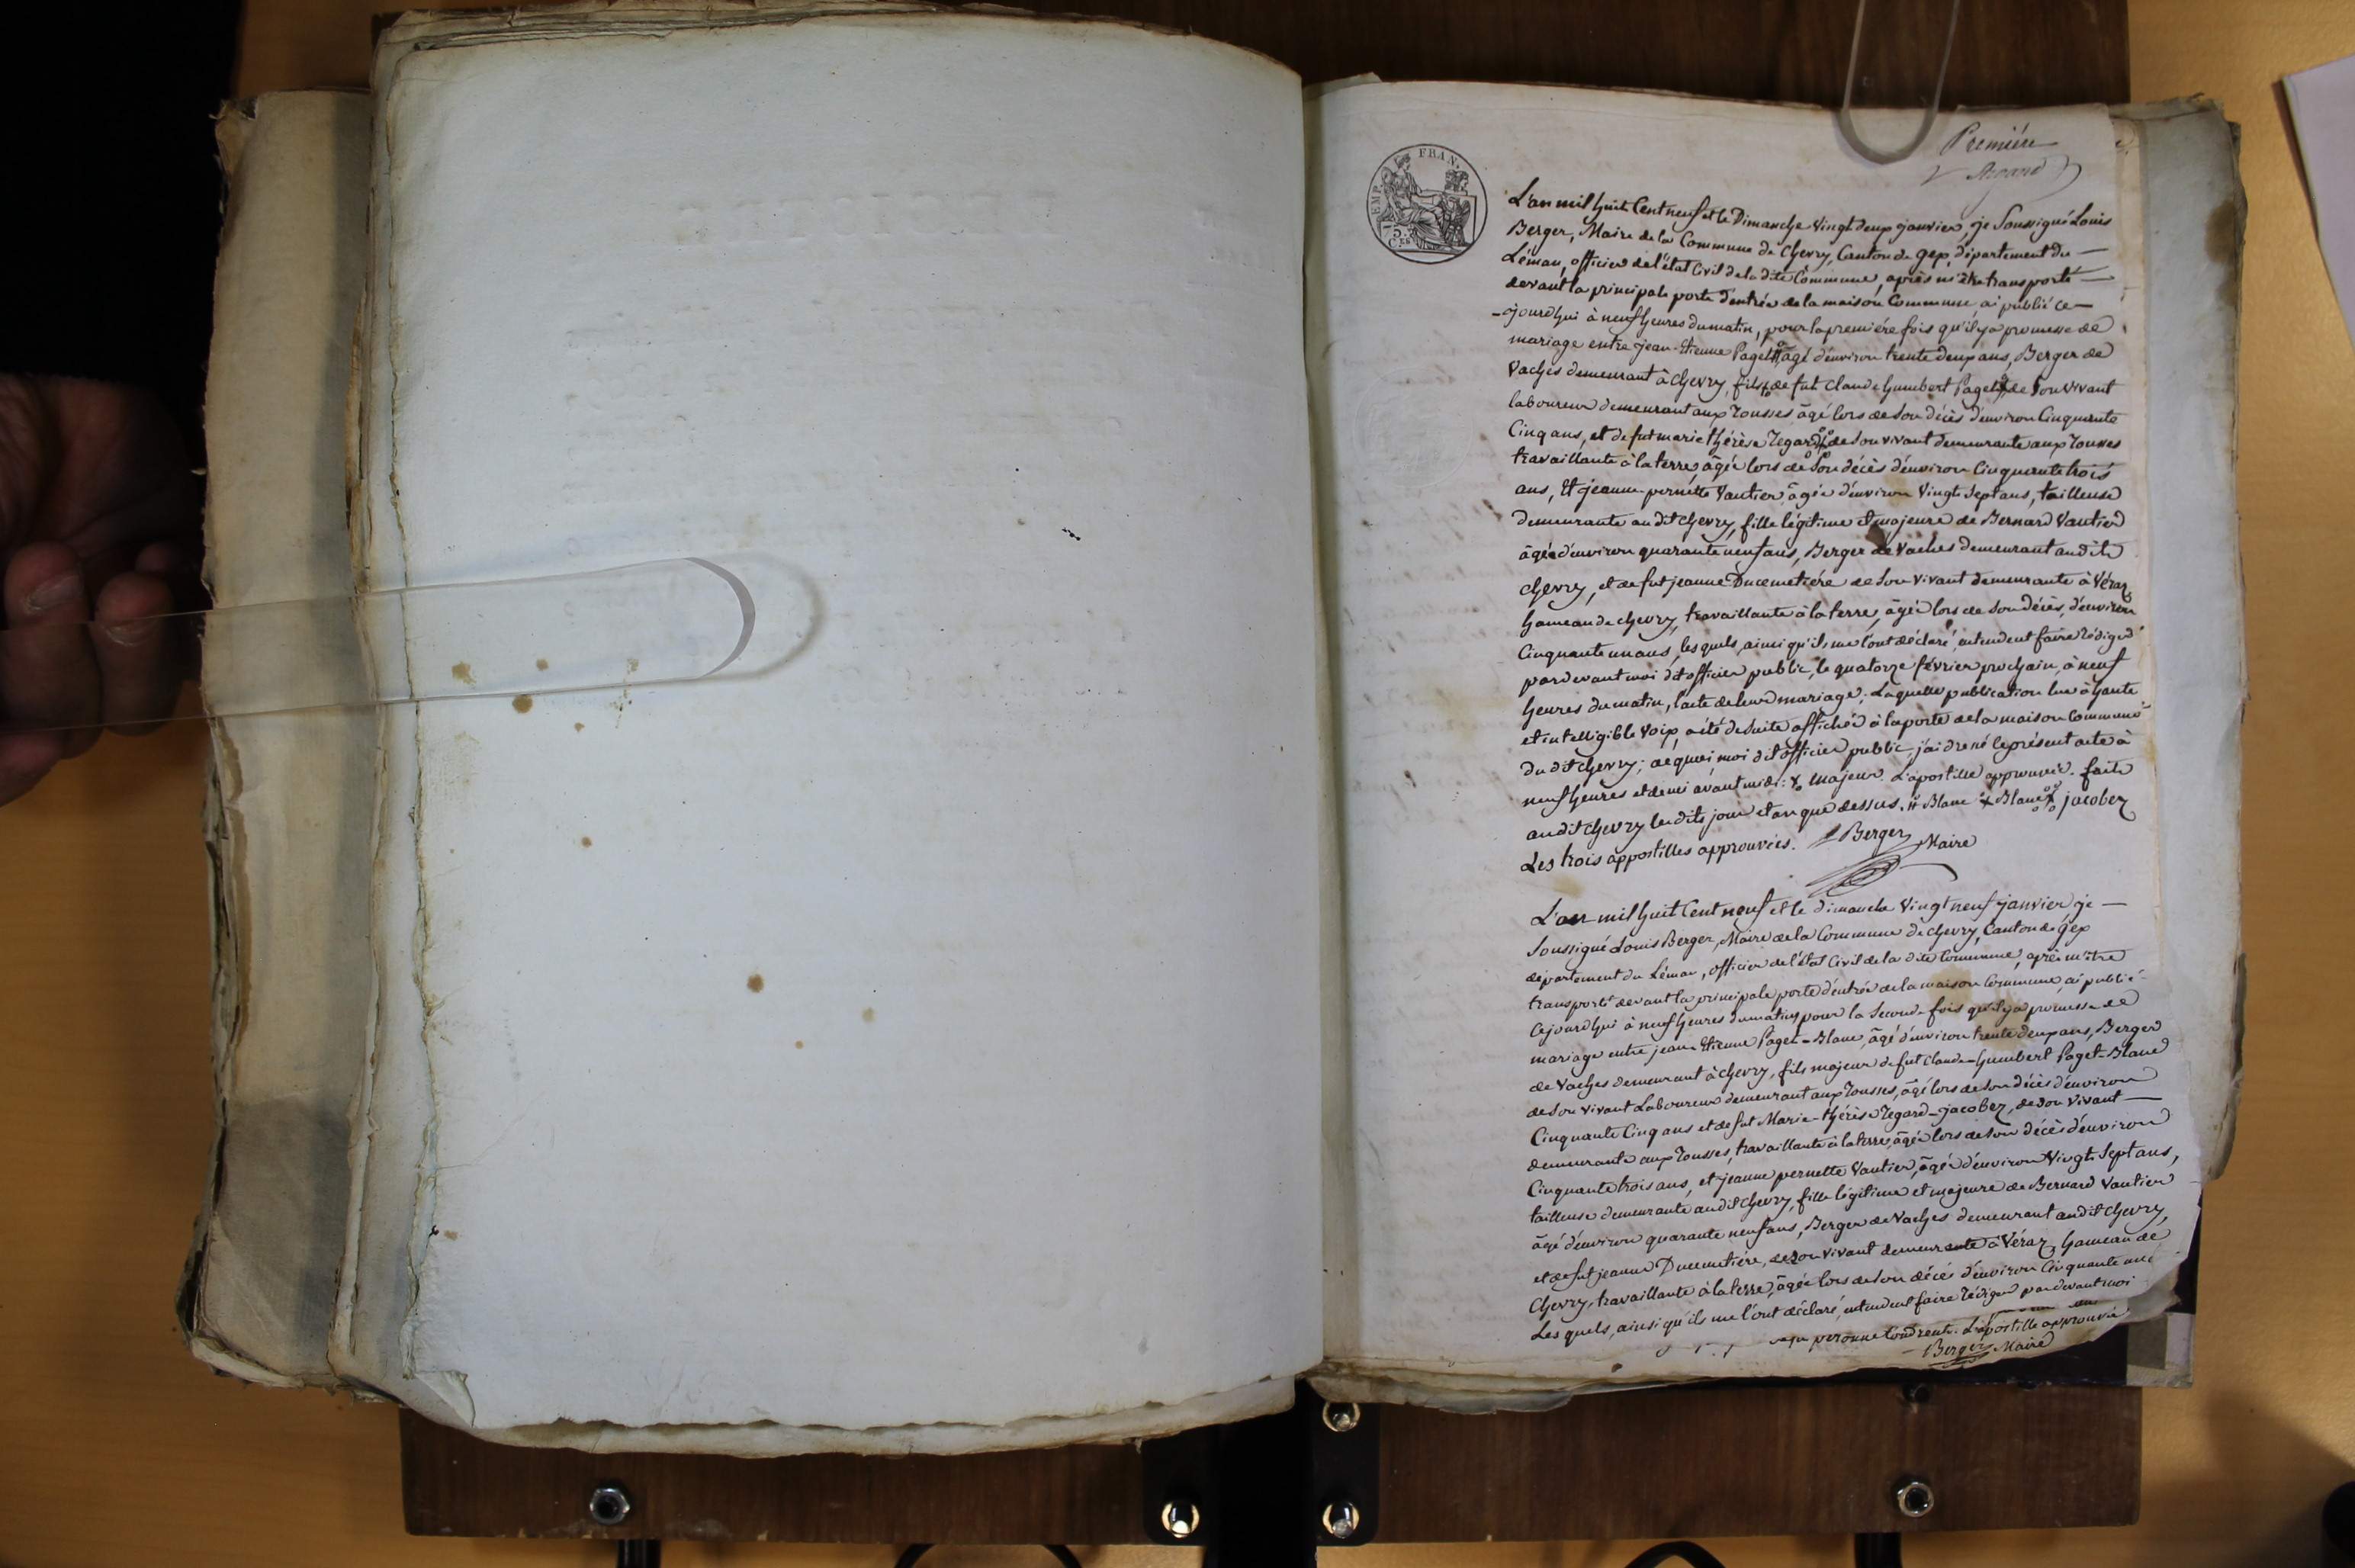 Première
EMP. FRAN.
75. C.es
L'an mil huit Cent neuf et le Dimanche Vingt deux janvier, je Soussigné Louis
Berger, Maire de la Commune de Chevry, Canton de gex, département du
Léman, officier de l'état Civil de la dite Commune, après m'être transporté
devant la principale porte d'entrée de la maison Commune, ai publié ce-
-jourd'hui à neuf heures du matin, pour la première fois qu'il y a promesse de
mariage entre jean-Etienne Paget # âgé d'environ trente deux ans, Berger de
Vaches demeurant à Chevry, fils de fut Claude humbert Paget de Son vivant
laboureur demeurant aux rousses âgé lors de son décès d'environ Cinquante
Cinq ans, et de fut marie thérèse regard de Son vivant demeurante aux rousses
travaillante à la terre, âgée lors de Son décès d'environ Cinquante trois
ans, Et jeanne pernette Vautier âgée d'environ Vingt Sept ans, tailleuse
demeurante au dit Chevry, fille légitime et majeure de Bernard Vautier
âgé d'environ quarante neuf ans, Berger de Vaches demeurant au dit
Chevry, et de fut jeanne Ducemetière de Son vivant demeurante à Véraz
hameau de Chevry, travaillante à la terre, âgée lors de Son décès, d'environ
Cinquante un ans, les quels, ainsi qu'ils me l'ont déclaré, entendent faire rédiger
par devant moi dit officier public, le quatorze février prochain, à neuf
heures du matin, l'acte de leur mariage; Laquelle publication lue à haute
et intelligible Voix, a été de Suite affichée à la porte de la maison Commune
du dit Chevry; de quoi, moi dit officier public, j'ai dressé le présent acte à
neuf heures et demi avant midi: majeur. L'apostille approuvée. fait
au dit Chevry les dits jour et an que dessus. # Blanc Blanc jacobez
Les trois appostilles approuvées. Berger Maire
L'an mil huit Cent neuf et le dimanche Vingt neuf janvier je
Soussigné Louis Berger, Maire de la Commune de Chevry, Canton de gex
département du Léman, officier de l'état Civil de la dite Commune, après m'être
transporté devant la principale porte d'entrée de la maison Commune, ai publié
Cejourd'hui à neuf heures du matin, pour la Seconde fois qu'il y a promesse de
mariage entre jean-Etienne Paget-Blanc, âgé d'environ trente deux ans, Berger
de Vaches demeurant à Chevry, fils majeur de fut Claude-humbert Paget-Blanc
de Son vivant Laboureur demeurant aux rousses, âgé lors de Son décès d'environ
Cinquante Cinq ans et de fut Marie-thérèse regard-jacobez, de Son Vivant
demeurante aux rousses, travaillante à la terre, âgée lors de Son décès d'environ
Cinquante trois ans, et jeanne pernette Vautier, âgée d'environ Vingt Sept ans,
tailleuse demeurante au dit Chevry, fille légitime et majeure de Bernard Vautier
âgé d'environ quarante neuf ans, Berger de Vaches demeurant au dit Chevry,
et de fut jeanne Ducemetière, de Son vivant demeurante à Véraz, hameau de
Chevry, travaillante à la terre, âgée lors de Son décès d'environ Cinquante un
Les quels, ainsi qu'ils me l'ont déclaré, entendent faire rédiger par devant moi
L'apostille approuvée
Berger Maire